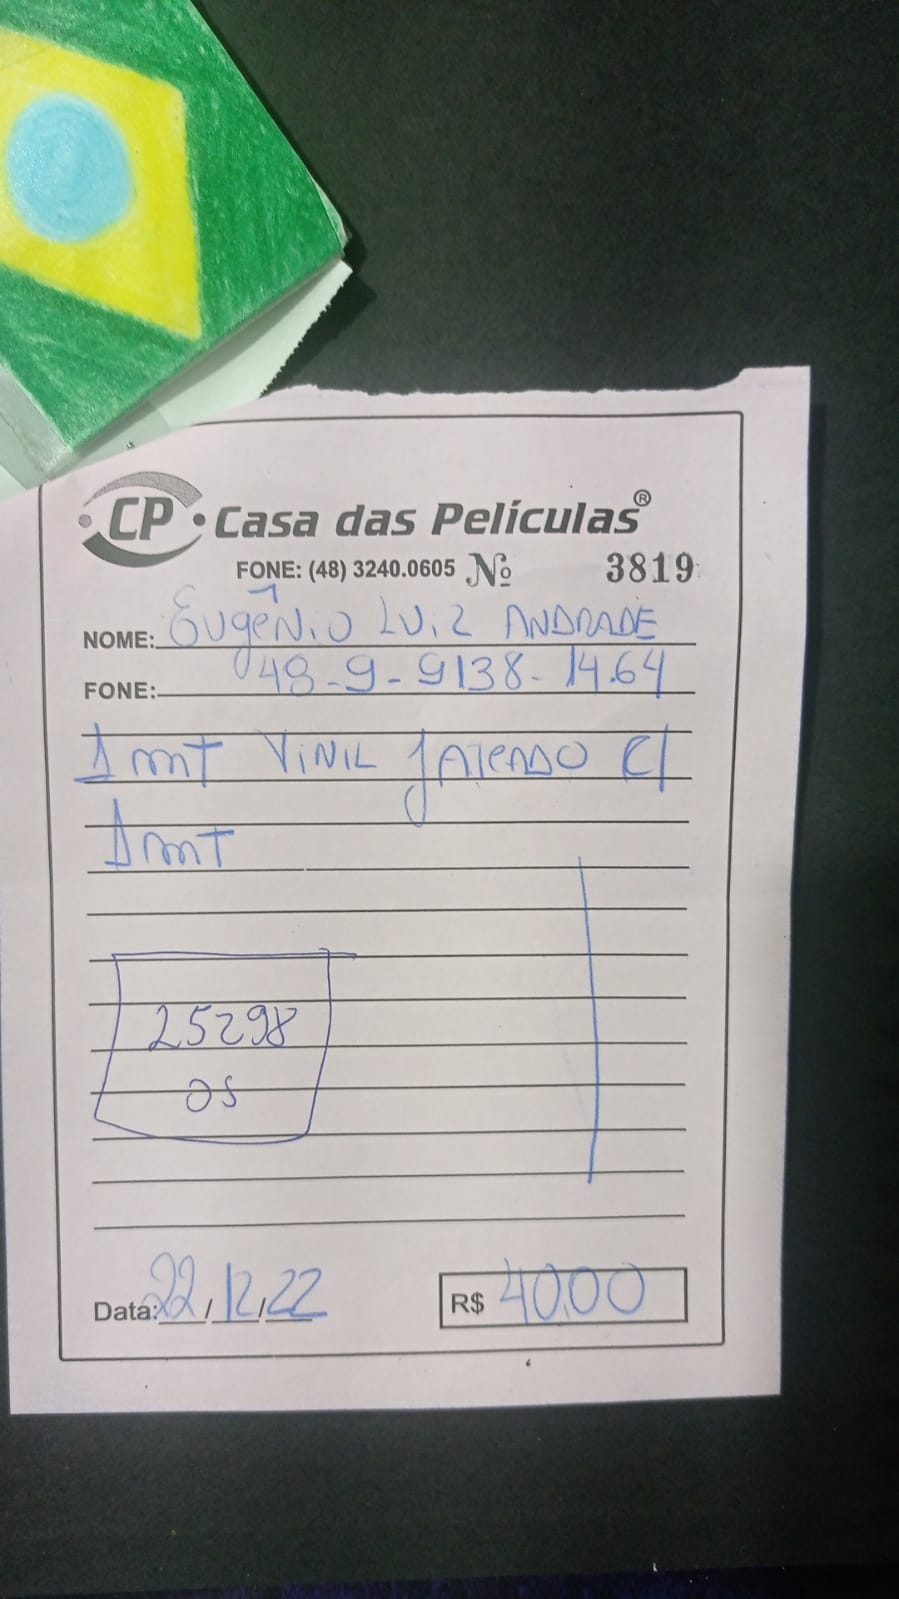 CP Casa das Películas®
FONE: (48) 3240.0605 Nº 3819
NOME: Eugênio Luiz ANDRADE
FONE: 48-9-9138-14.64
1 mt ViNiL jATEADO C/
1 mt
25298
OS
Data: 22/12/22 R$ 40,00